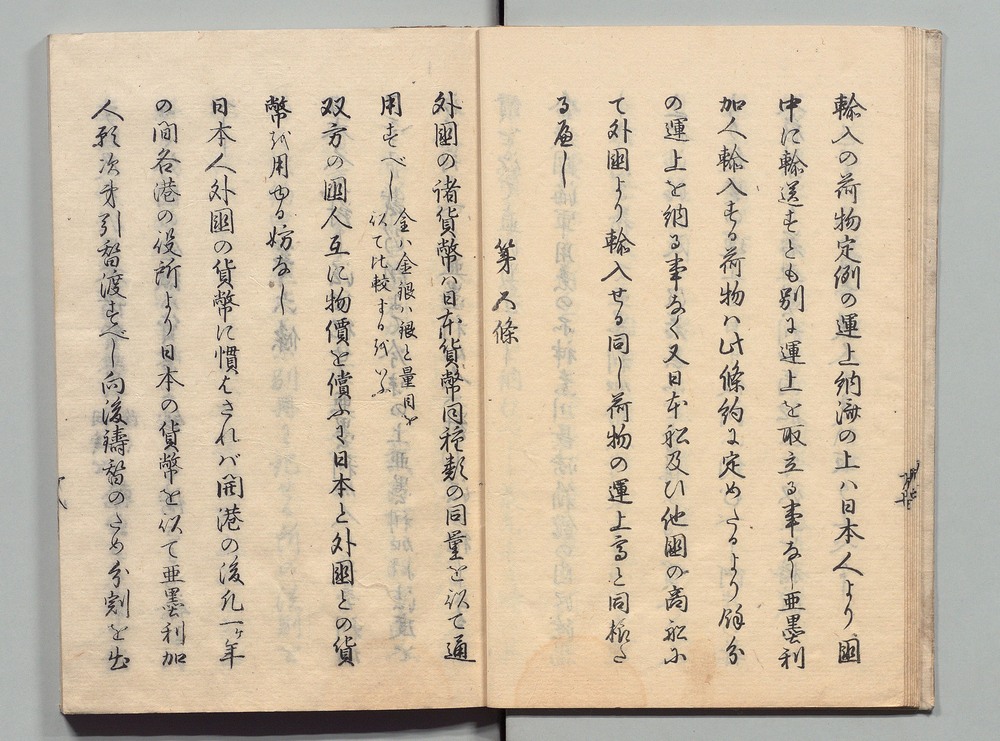 輸入の荷物定例の運上納済の上ハ日本人より國
中に輸送すとも別に運上を取立る事なし亜墨利
加人輸入する荷物ハ此條約に定めたるより餘分
の運上を納る事なく又日本船及ひ他國の商船に
て外國より輸入せる同し荷物の運上高と同様た
るへし
第五條
外國の諸貨幣ハ日本貨幣同種類の同量を以て通
用すへし
金ハ金銀ハ銀と量目を
以て比較するをいふ
双方の國人互に物價を償ふに日本と外國との貨
幣を用ゆる妨なし
日本人外國の貨幣に慣はされハ開港の後凡一ケ年
の間各港の役所より日本の貨幣を以て亜墨利加
人願次第引替渡すへし向後鑄替のため分割を出